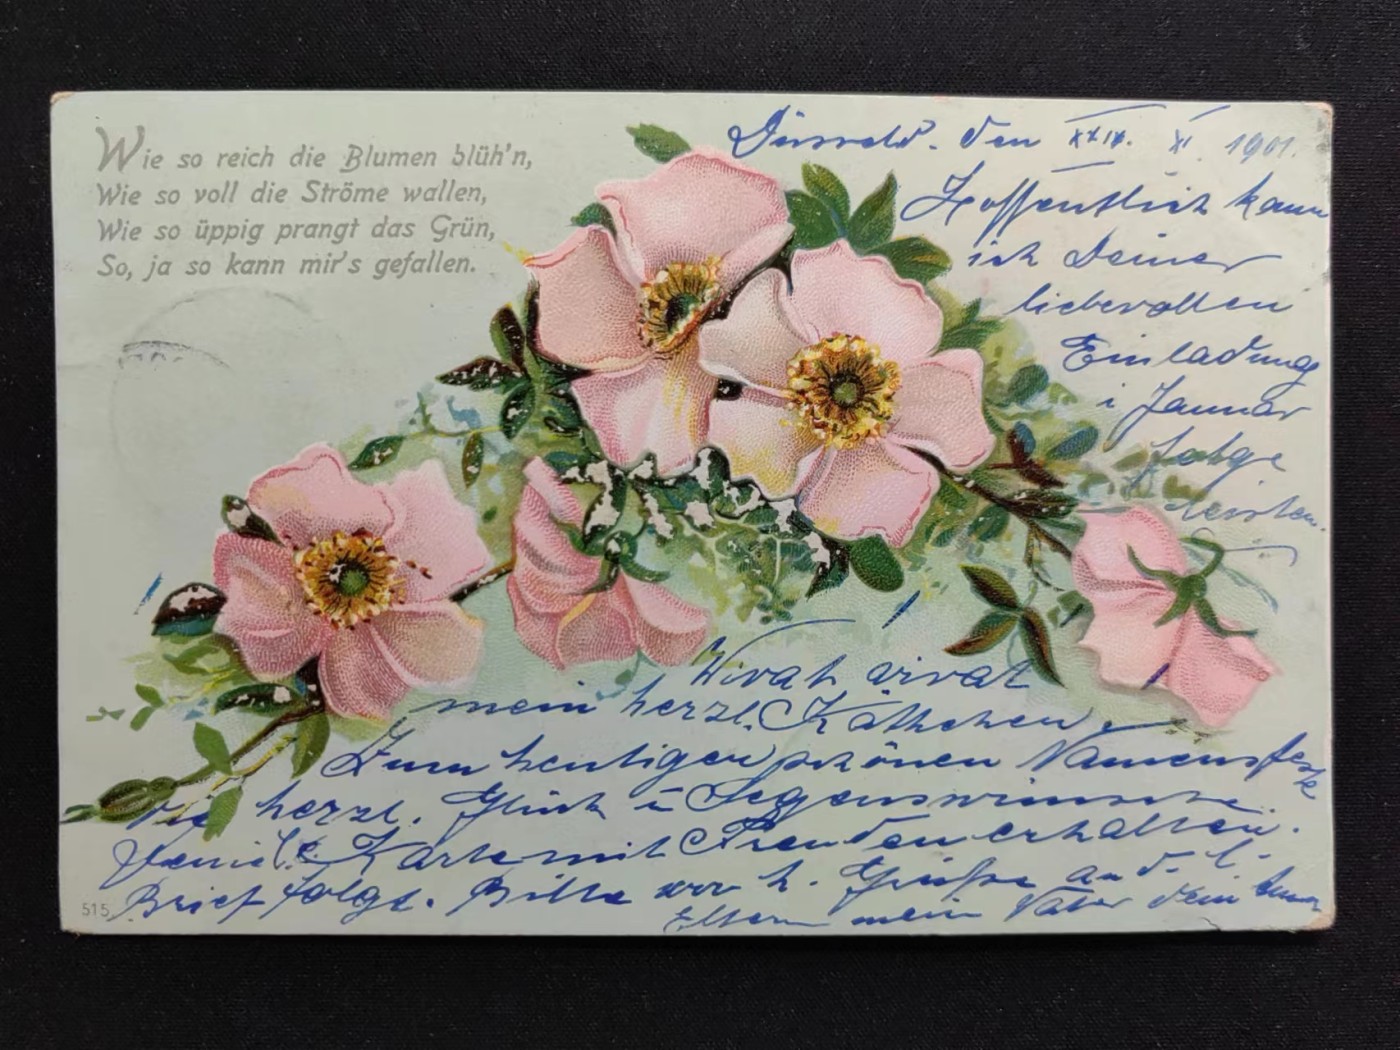 Wie so reich die Blumen blüh'n,
Wie so voll die Ströme wallen,
Wie so üppig prangt das Grün,
So, ja so kann mir's gefallen.
Düsseld. den XXIV. XI. 1901.
Hoffentlich kann
ich Deiner
liebevollen
Einladung
i Januar
folge
leisten.
Vivat vivat
mein herzl. Käthchen.
Zum heutigen schönen Namensfeste
die herzl. Glück u Segenswünsche.
Deine l. Karte mit Freuden erhalten.
Brief folgt. Bitte h. Grüße an d. l.
Eltern mein Vater dein
515